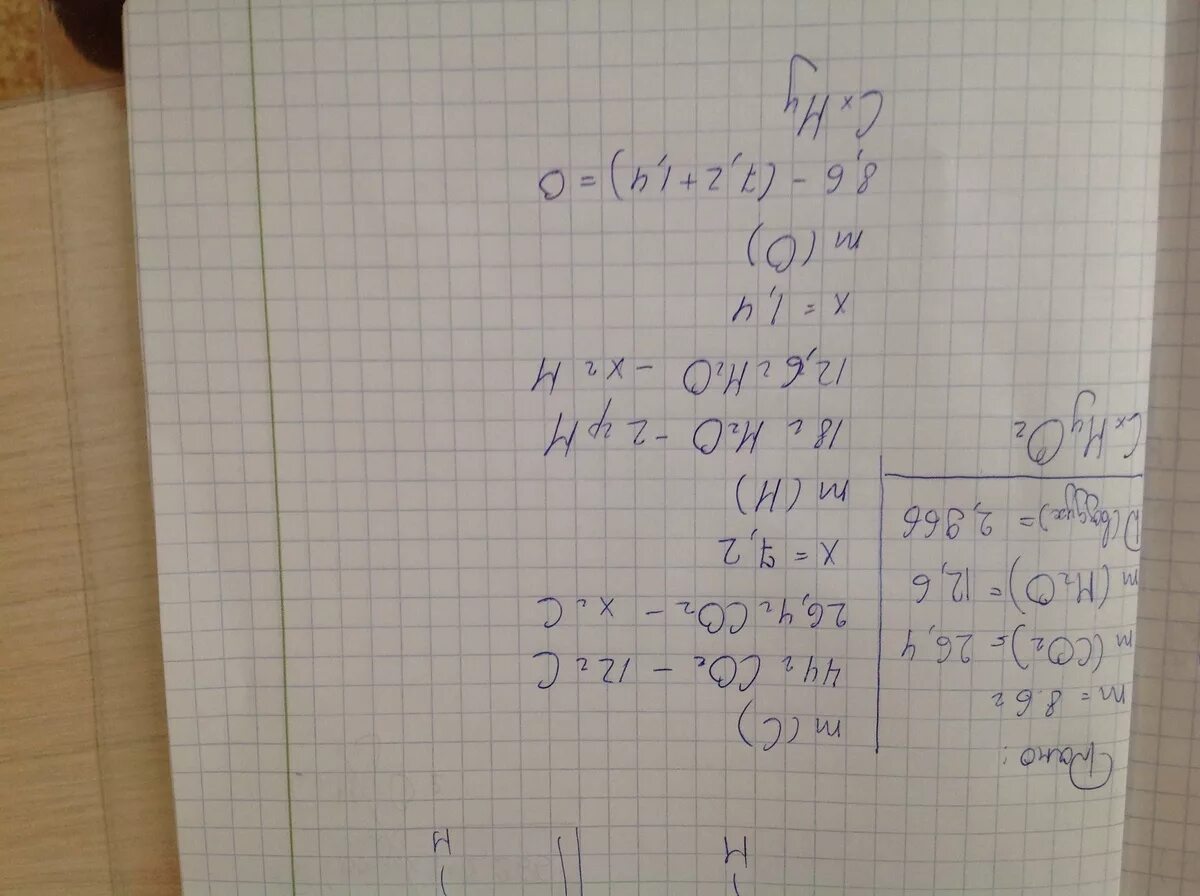 Дано:
m = 8.6г
m(CO₂) = 26,4
m(H₂O) = 12,6
D(воздух) = 2,966
CxHyOz
m(C)
44г CO₂ – 12г C
26,4г CO₂ – xг C
x = 7,2
m(H)
18г H₂O – 2гр H
12,6г H₂O – xг H
x = 1,4
m(O)
8,6 – (7,2 + 1,4) = 0
CxHy